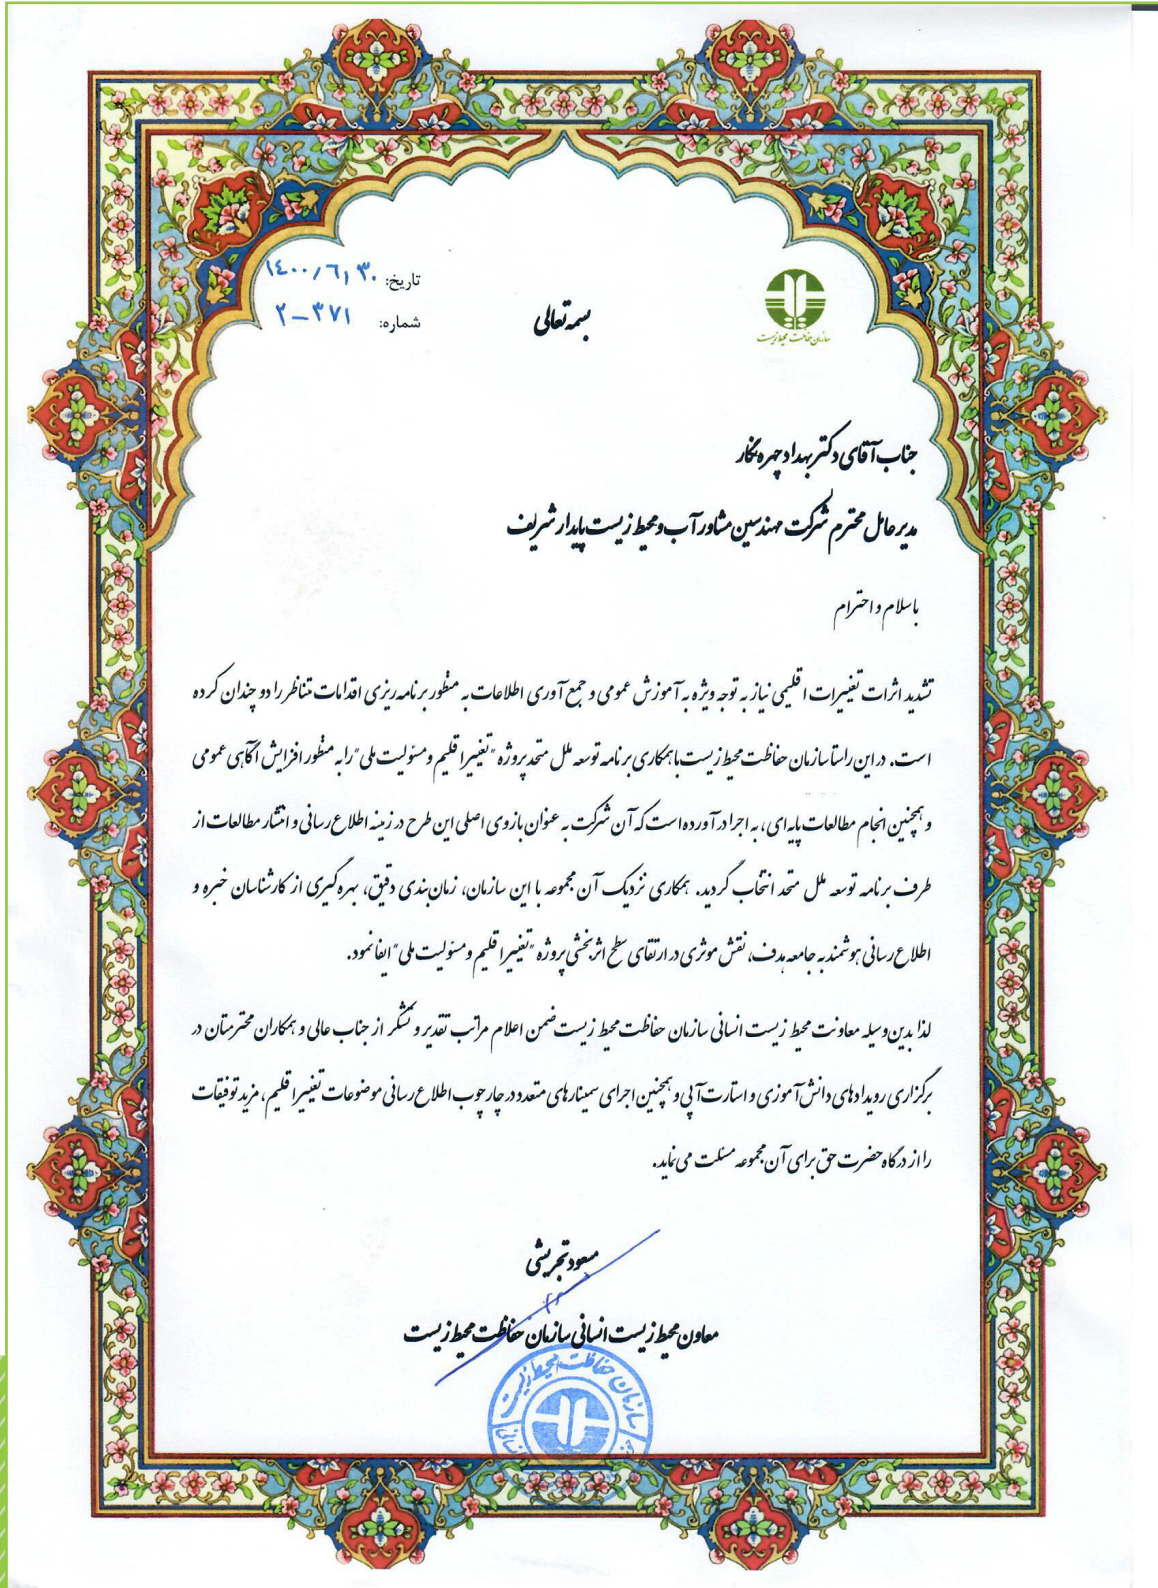 تاریخ: ۱۴۰۰/۶/۳۰
شماره: ۳۷۱-۲
بسمه تعالی
سازمان حفاظت محیط زیست
جناب آقای دکتر بهداد چهره نگار
مدیرعامل محترم شرکت مهندسین مشاور آب و محیط زیست پایدار شریف
با سلام و احترام
تشدید اثرات تغییرات اقلیمی نیاز به توجه ویژه به آموزش عمومی و جمع آوری اطلاعات به منظور برنامه ریزی اقدامات متناظر را دو چندان کرده
است. در این راستا سازمان حفاظت محیط زیست با همکاری برنامه توسعه ملل متحد پروژه "تغییر اقلیم و مسئولیت ملی" را به منظور افزایش آگاهی عمومی
و همچنین انجام مطالعات پایه ای، به اجرا در آورده است که آن شرکت به عنوان بازوی اصلی این طرح در زمینه اطلاع رسانی و انتشار مطالعات از
طرف برنامه توسعه ملل متحد انتخاب گردید. همکاری نزدیک آن مجموعه با این سازمان، زمان بندی دقیق، بهره گیری از کارشناسان خبره و
اطلاع رسانی هوشمند به جامعه هدف، نقش موثری در ارتقای سطح اثربخشی پروژه "تغییر اقلیم و مسئولیت ملی" ایفا نمود.
لذا بدین وسیله معاونت محیط زیست انسانی سازمان حفاظت محیط زیست ضمن اعلام مراتب تقدیر و تشکر از جناب عالی و همکاران محترمتان در
برگزاری رویدادهای دانش آموزی و استارت آپی و همچنین اجرای سمینارهای متعدد در چارچوب اطلاع رسانی موضوعات تغییر اقلیم، مزید توفیقات
را از درگاه حضرت حق برای آن مجموعه مسئلت می نماید.
مسعود تجریشی
معاون محیط زیست انسانی سازمان حفاظت محیط زیست
سازمان حفاظت محیط زیست